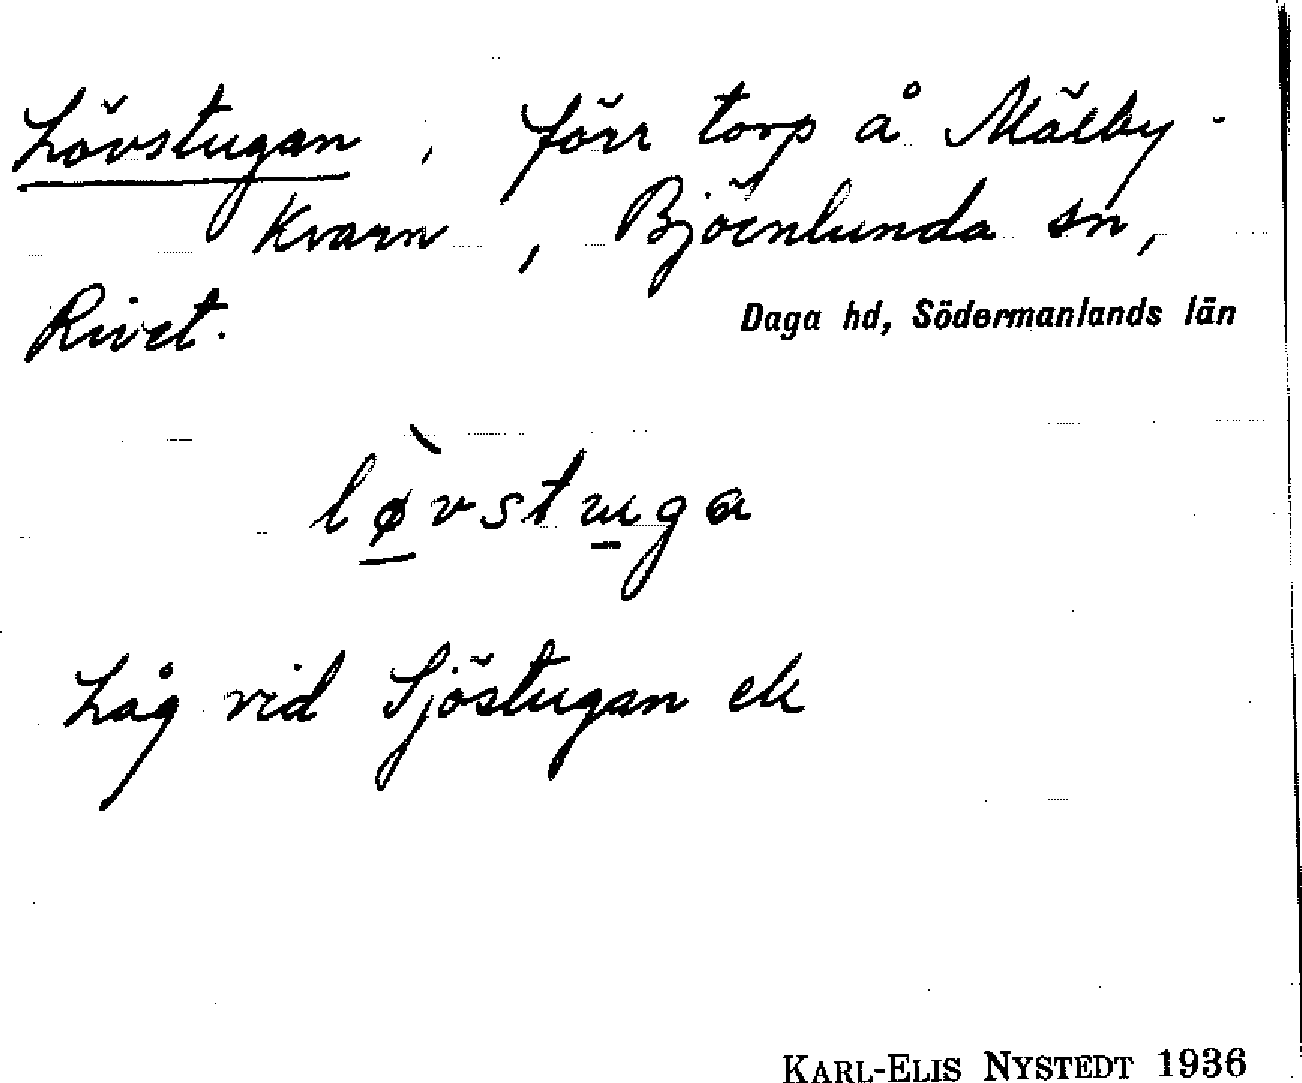 Lövstugan, förr torp å Mälby-
Kvarn, Björnlunda sn,
Rivet.
Daga hd, Södermanlands län
lø̀vstuga
Låg vid Sjöstugan ek
KARL-ELIS NYSTEDT 1936